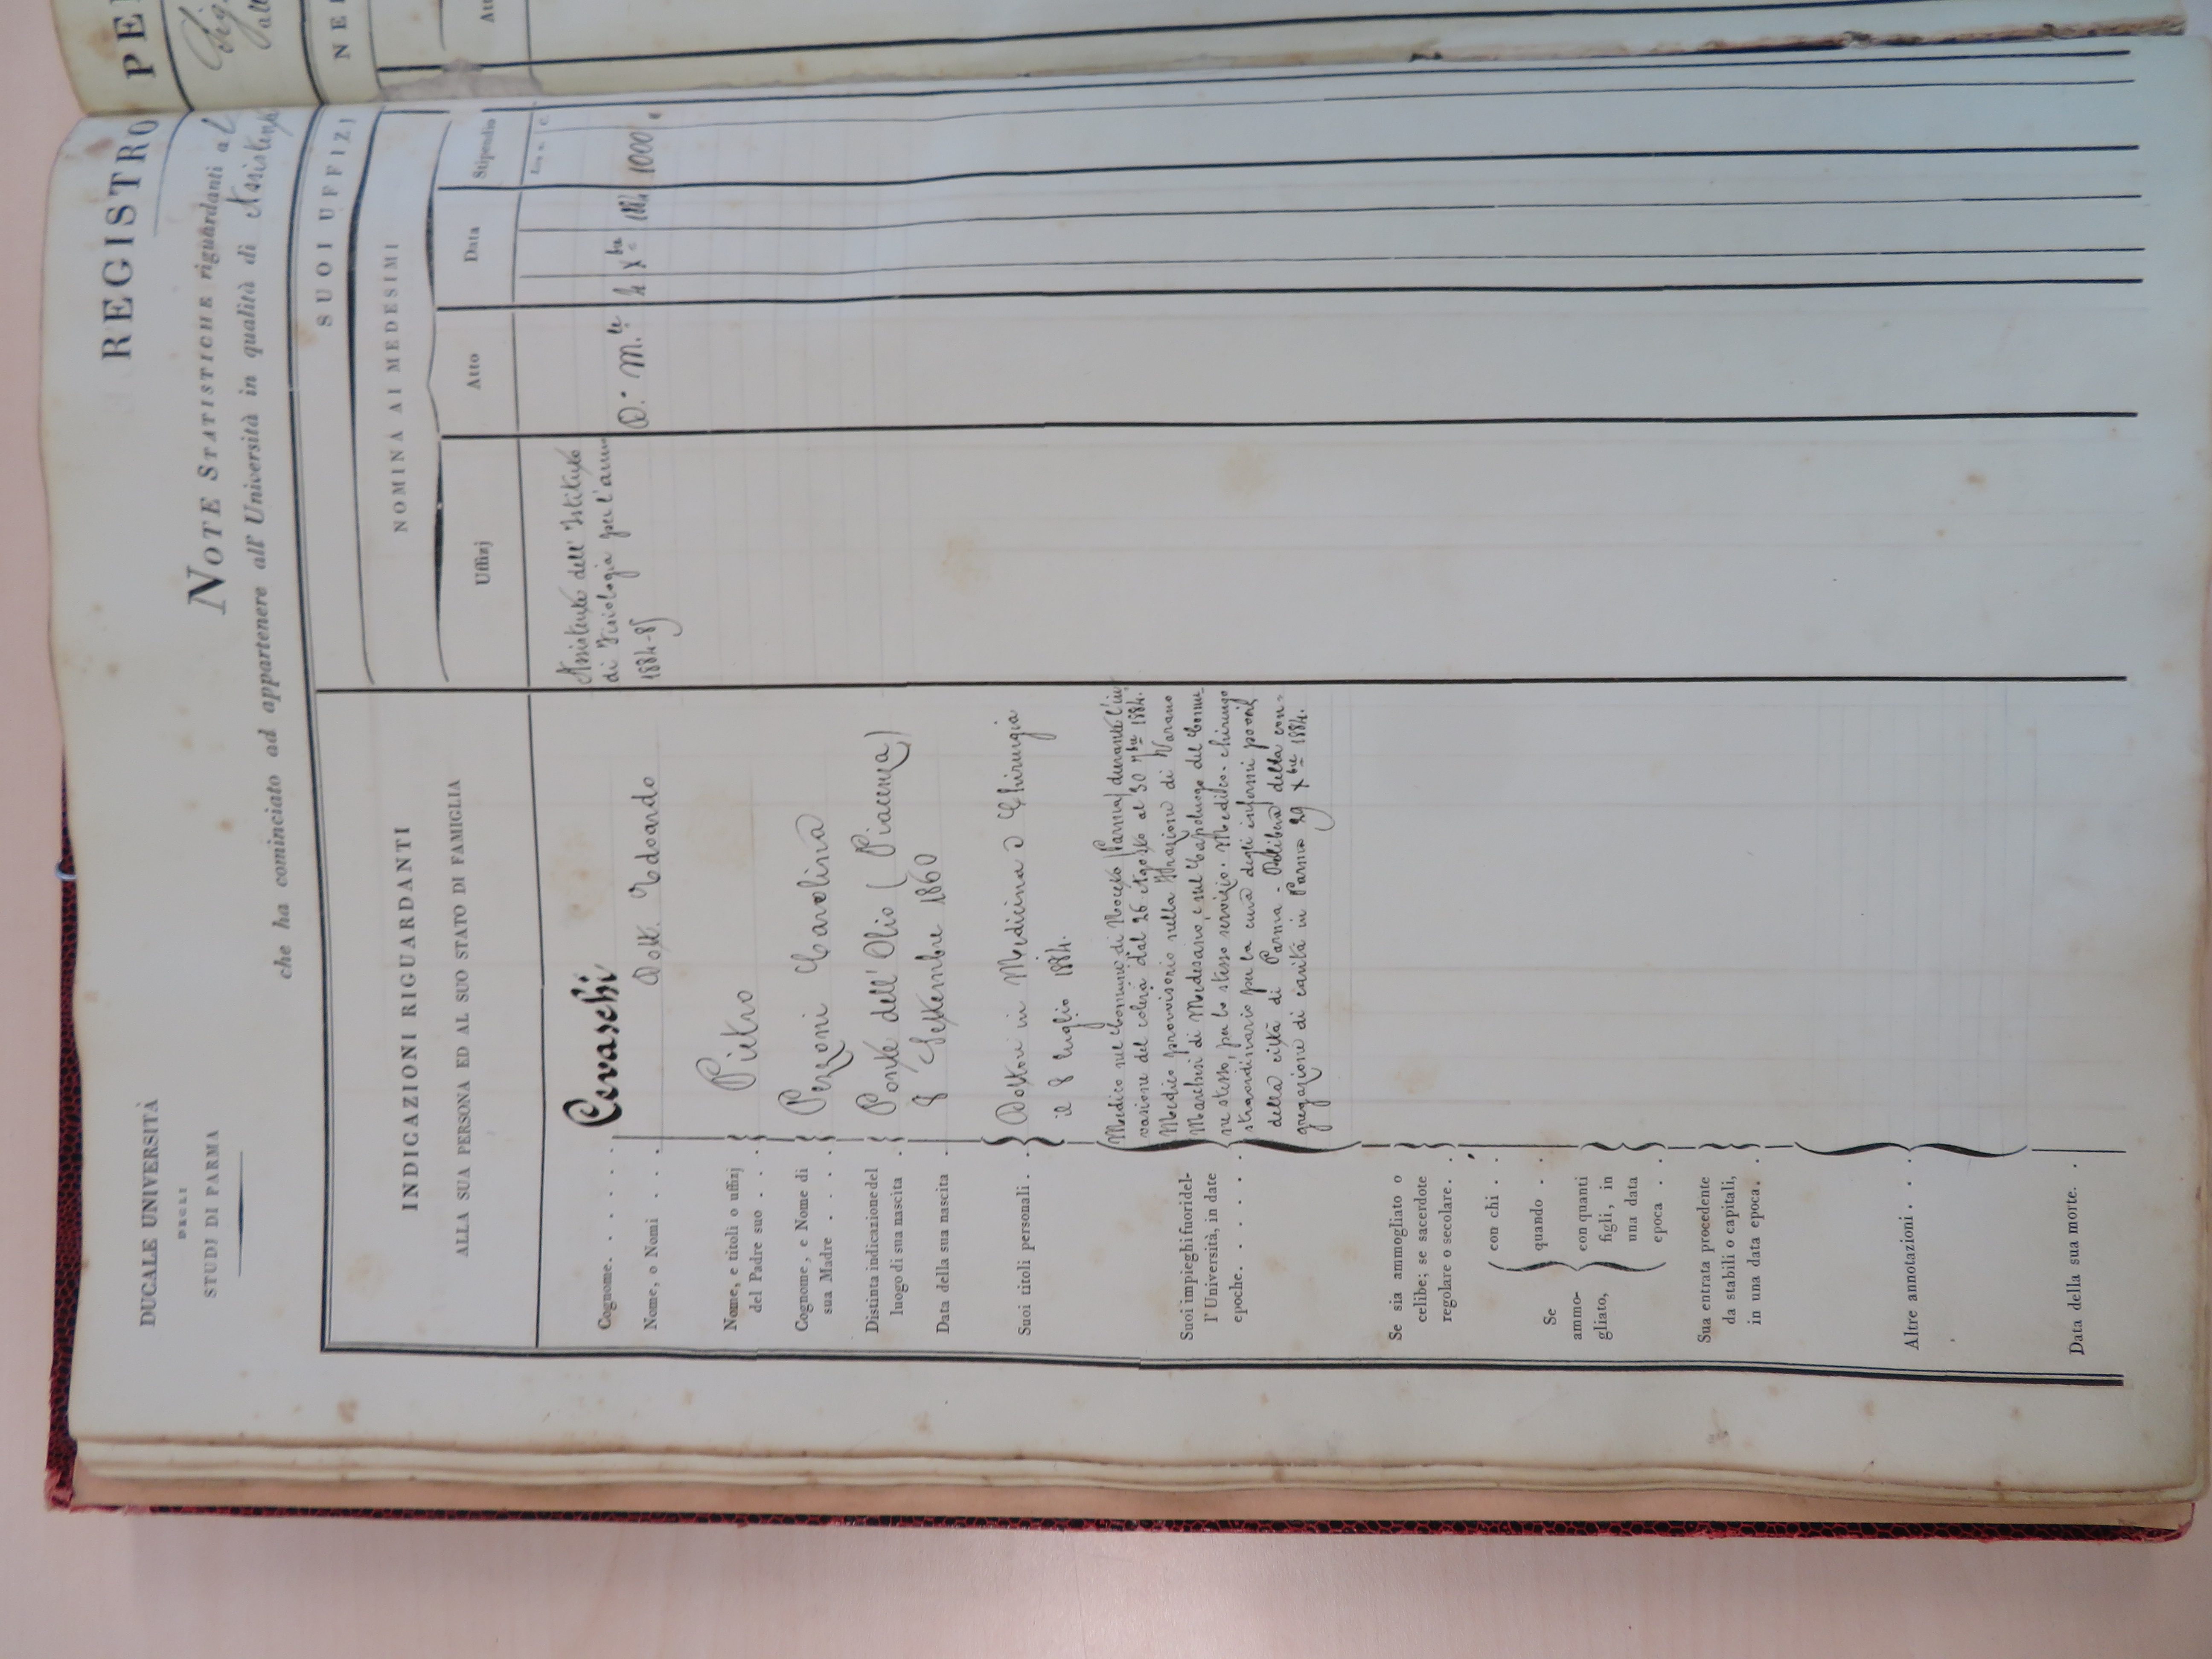 DUCALE UNIVERSITÀ
DEGLI
STUDI DI PARMA
REGISTRO
PE
NOTE STATISTICHE riguardanti al
che ha cominciato ad appartenere all' Università in qualità di Assistente
INDICAZIONI RIGUARDANTI
ALLA SUA PERSONA ED AL SUO STATO DI FAMIGLIA
SUOI UFFIZJ
NE
NOMINA AI MEDESIMI
Uffizj
Atto
Data
Stipendio
Cognome. . . . . . Cevaschi
Nome, o Nomi . . . Dott. Edoardo
Nome, e titoli o uffizj
del Padre suo . . . Pietro
Cognome, e Nome di
sua Madre . . . . Perzoni Carolina
Distinta indicazione del
luogo di sua nascita . Ponte dell' Olio (Piacenza)
Data della sua nascita . 8 Settembre 1860
Suoi titoli personali . . Dottore in Medicina e Chirurgia
il 8 luglio 1884.
Suoi impieghi fuori del-
l' Università, in date
epoche. . . . . .
Medico nel Comune di Noceto (Parma) durante l'in
vasione del colera dal 26 Agosto al 30 9bre 1884.
Medico provvisorio nella frazione di Varano
Marchesi di Medesano, e nel Capoluogo del Comu
ne stesso, per lo stesso servizio. Medico-chirurgo
straordinario per la cura degli infermi poveri
della città di Parma - Delibera della con-
gregazione di carità in Parma 29 Xbre 1884.
Se sia ammogliato o
celibe; se sacerdote
regolare o secolare. .
Se
ammo-
gliato,
con chi . .
quando . .
con quanti
figli, in
una data
epoca . .
Sua entrata procedente
da stabili o capitali,
in una data epoca. .
Altre annotazioni . . .
Data della sua morte. .
Assistente dell' Istituto
di Fisiologia per l'anno
1884-85
D. M.le
4 Xbre 1884
1000